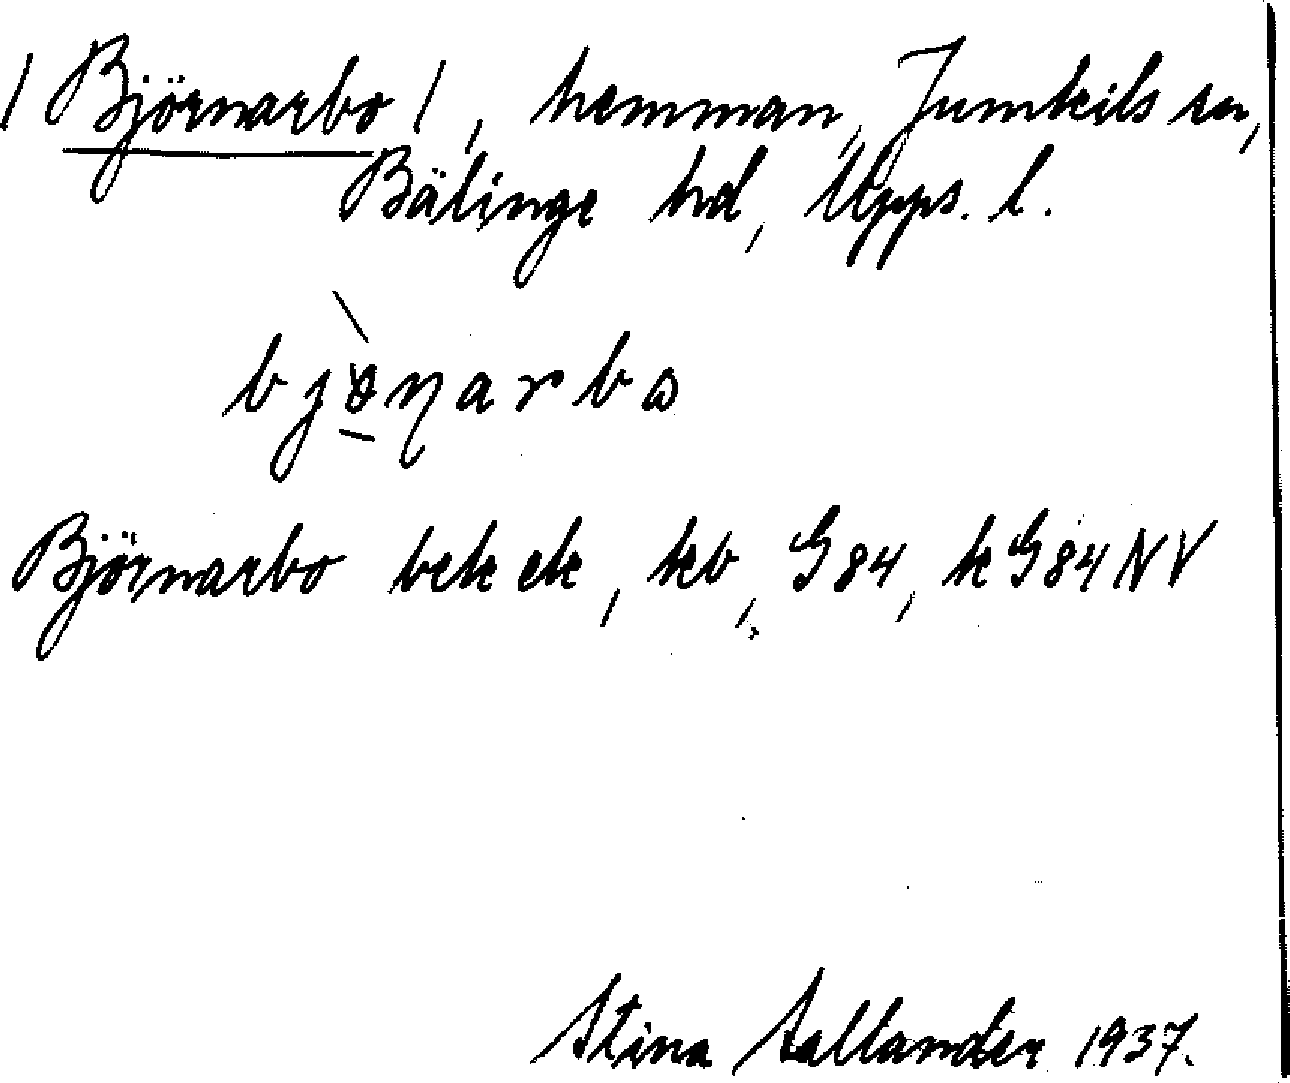 / Björnarbo /, hemman, Jumkils sn,
Bälinge hd, Upps. l.
bjönarbo
Björnarbo bek ek, kb, G84, kG84NV
Stina Sallander 1937.